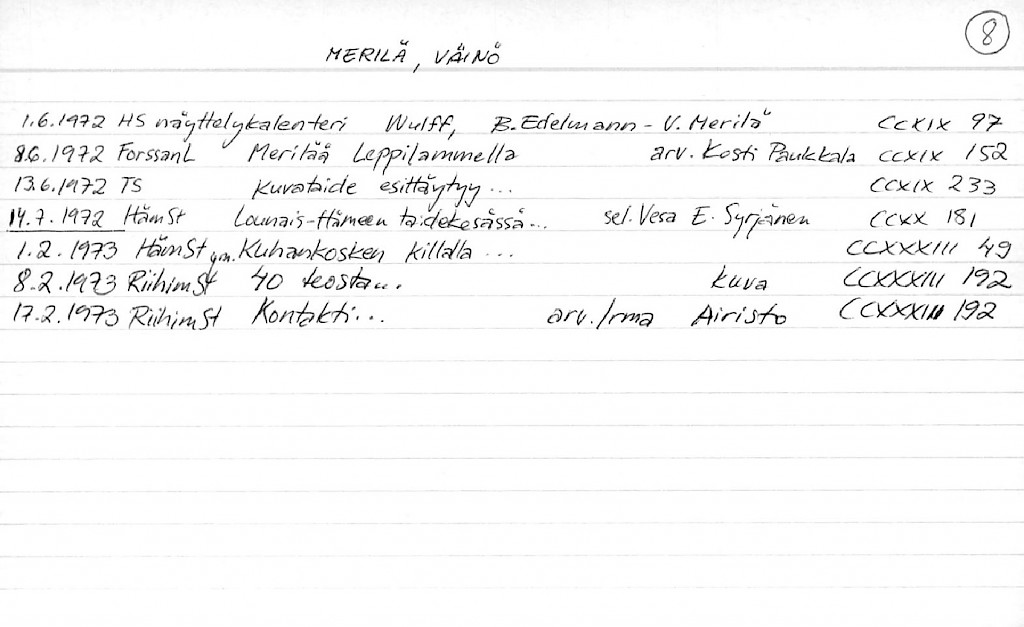 8
MERILÄ, VÄINÖ
1.6.1972 HS näyttelykalenteri Wulff, B. Edelmann - V. Merilä CCXIX 97
8.6.1972 ForssanL Merilää Leppilammella arv. Kosti Paukkala CCXIX 152
13.6.1972 TS Kuvataide esittäytyy... CCXIX 233
14.7.1972 HämSt Lounais-Hämeen taidekesässä... sel. Vesa E. Syrjänen CCXX 181
1.2.1973 HämSt ym. Kuhankosken killalla... CCXXXIII 49
8.2.1973 RiihimSt 40 teosta... kuva CCXXXIII 192
17.2.1973 RiihimSt Kontakti... arv. Irma Airisto CCXXXIII 192